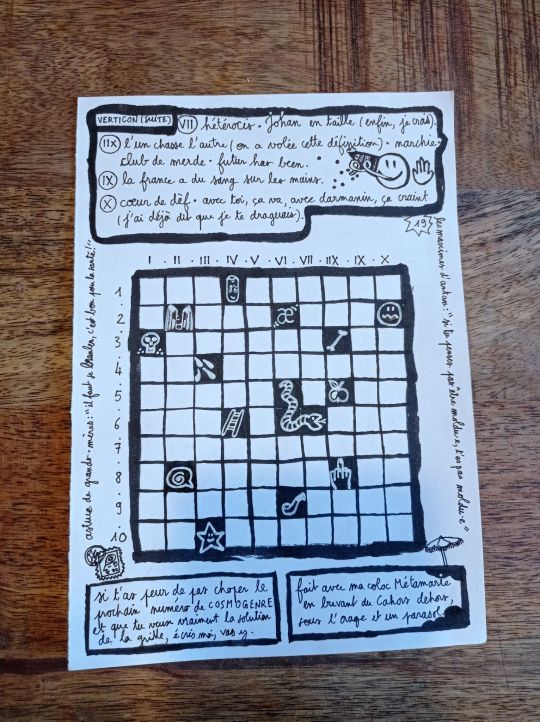 VERTICON (SUITE) VII hétérocis. Johan en taille (enfin, je crois)
IIX l'un chasse l'autre (on a volée cette définition). marchie.
club de merde. futur has been.
IX la france a du sang sur les mains.
X cœur de dèf. avec toi, ça va, avec darmanin, ça craint
(j'ai déjà dit que je te draguais).
19
I · II · III · IV · V · VI · VII · IIX · IX · X
1
2
æ
3
4
5
6
7
8
9
10
astuce de grands-mères: "il faut se branler, c'est bon pour la santé!"
les maximes d'antan: "si tu penses pas être moldu·e, t'es pas moldu·e"
si t'as peur de pas choper le
prochain numéro de COSMOGENRE
et que tu veux vraiment la solution
de la grille, écris moi, vas y.
fait avec ma coloc Métamarte
en buvant du Cahors dehors,
sous l'orage et un parasol.